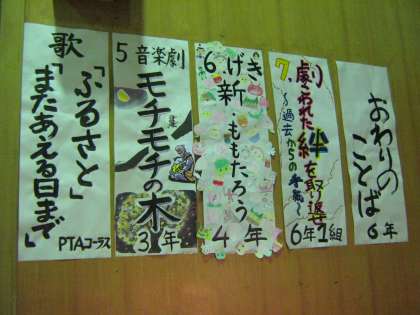 歌
「ふるさと」
「またあえる日まで」
PTAコーラス
5 音楽劇
モチモチの木
3年
6.げき
新・ももたろう
4年
7.劇
こわれた絆を取り
～過去からの手紙～
6年1組
おわりの
ことば
6年